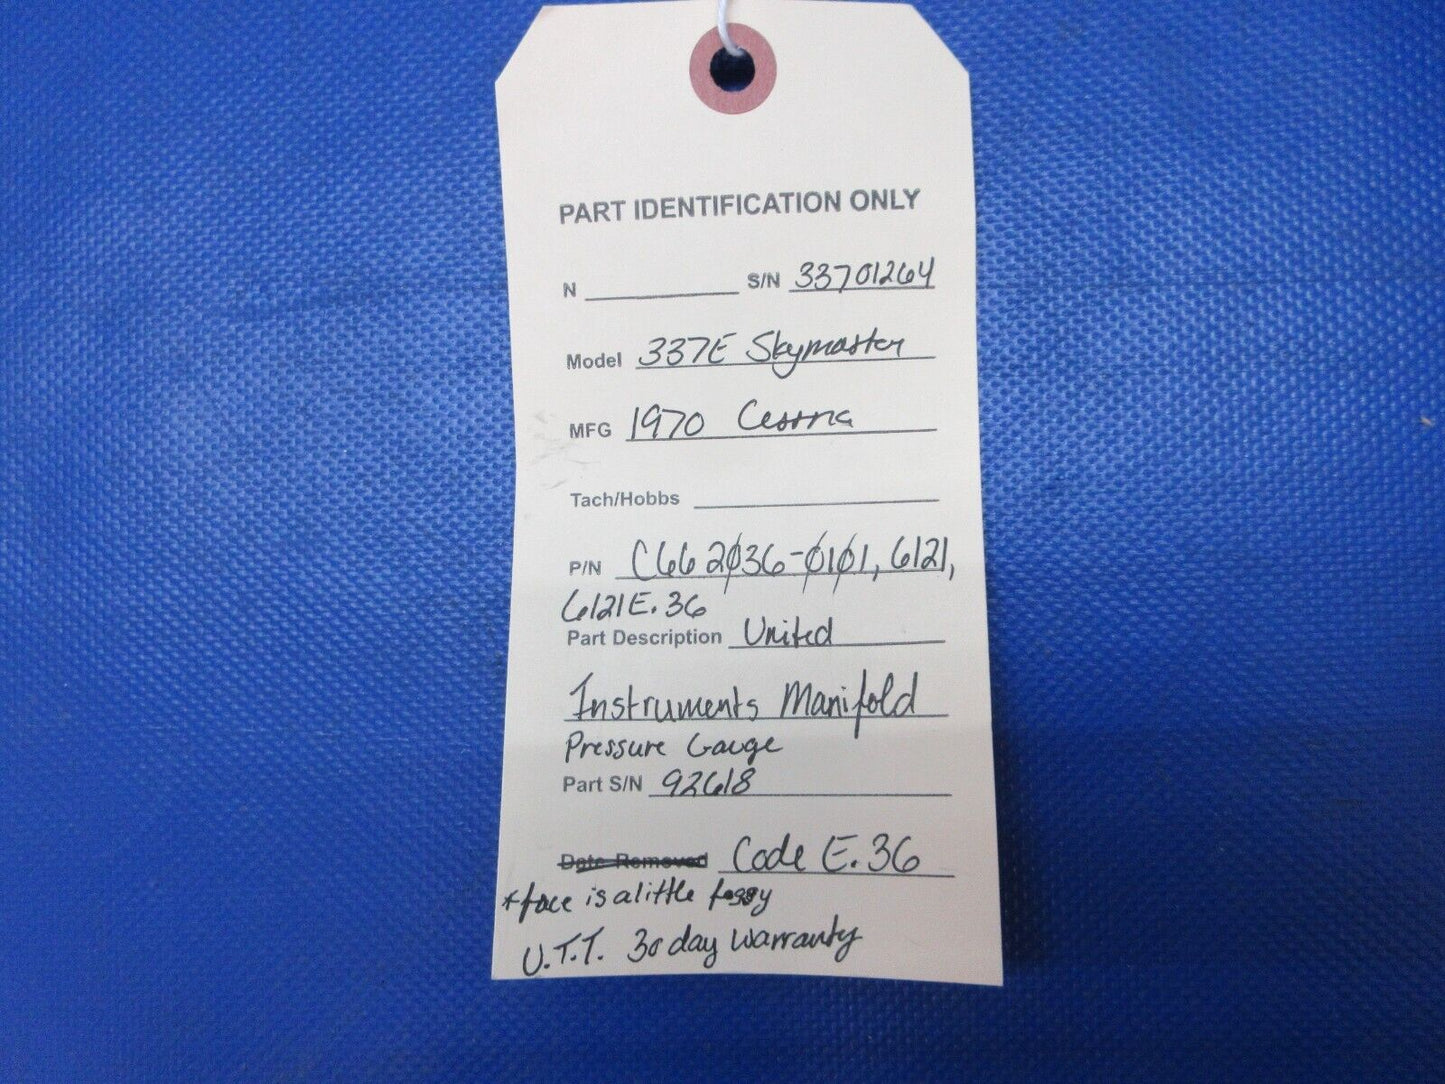 PART IDENTIFICATION ONLY
N S/N 33701264
Model 337E Skymaster
MFG 1970 Cessna
Tach/Hobbs
P/N C662036-0101, 6121,
6121E.36
Part Description United
Instruments Manifold
Pressure Gauge
Part S/N 92618
Date Removed Code E.36
*face is a little foggy
U.T.T. 30 day warranty